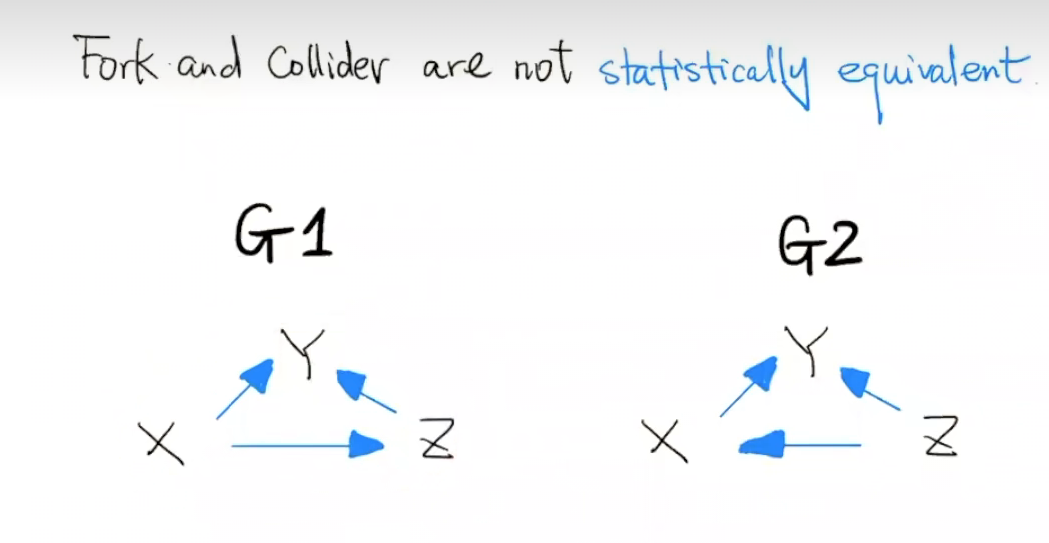 Fork and Collider are not statistically equivalent.
G1 G2
Y Y
X Z X Z